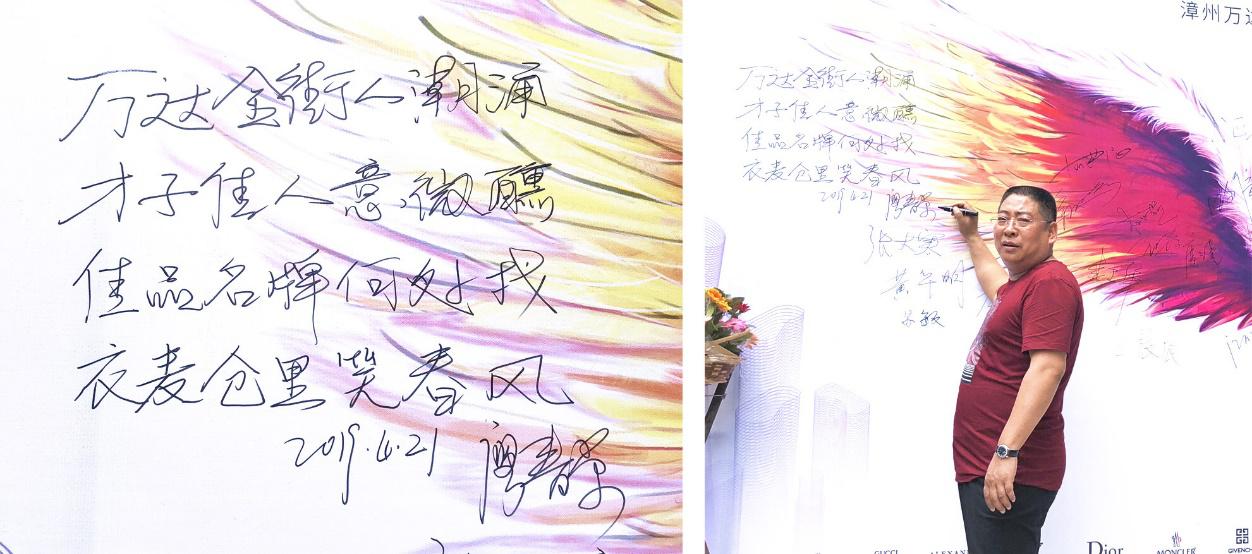 万达金街人潮涌
才子佳人意微醺
佳品名牌何处找
衣麦仓里笑春风
2019.4.21
漳州万达
万达金街人潮涌
才子佳人意微醺
佳品名牌何处找
衣麦仓里笑春风
2019.4.21
GUCCI
Dior
MONCLER